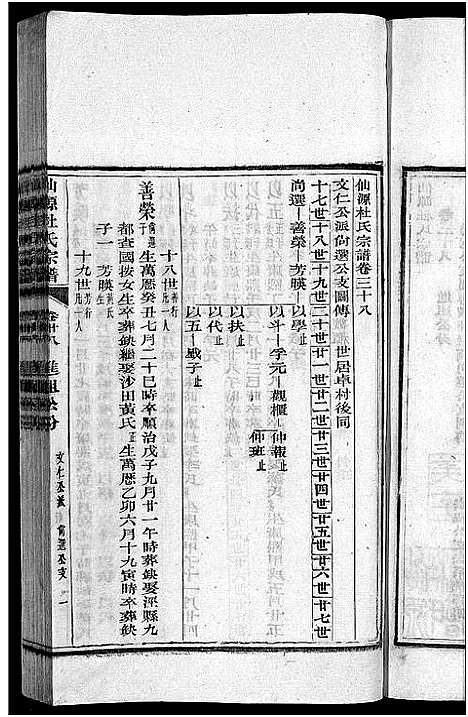 仙源杜氏宗譜卷三十八
文仁公派尚選公支圖傳　世居卓村後同
十七世十八世十九世二十世廿一世廿二世廿三世廿四世廿五世廿六世廿七世
尚選－善榮－芳暎－以學止
以斗－孚元－觀櫃－仲報止
仲班止
以扶止
以代止
以五－戲子止
十八世善行凡一人
善榮尚選子生萬歷癸丑七月二十巳時卒順治戊子九月廿一午時葬缺娶涇縣九
都查國按女生卒葬缺繼娶沙田黃氏生萬歷乙卯六月十九寅時卒葬缺
子一　芳暎黃氏
十九世芳行凡一人
仙源杜氏宗譜
卷卅八
進祖公分
文仁公派　尚選公支　一